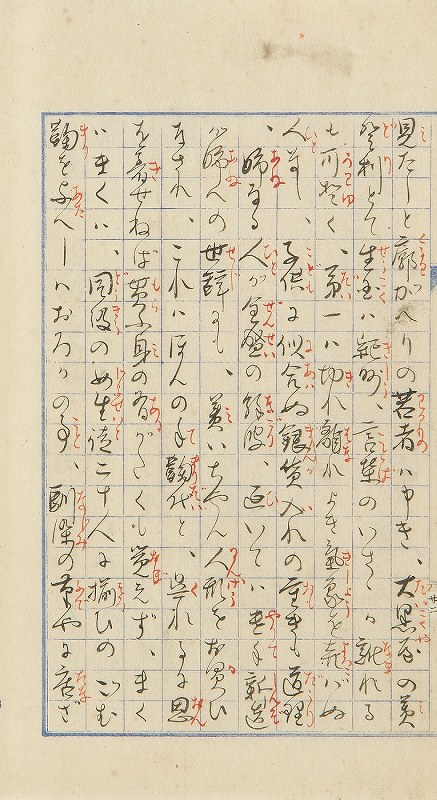 見たしと廓がへりの若者ハ申き、大黒屋の美
登利とて生國ハ紀州、言葉のいさゝか訛れる
も可愛く、第一ハ切れ離れよき氣象を喜ばぬ
人なし、子供に似合ぬ銀貨入れの重きも道理
、姉なる人が全盛の餘波、延いてハ遣手新造
が姉への世辭にも、美いちやん人形をお買ひ
なされ、これハほんの手鞠代と、呉れるに恩
を着せねば貰ふ身の有がたくも覺えず、まく
ハまくハ、同級の女生徒二十人に揃ひのごむ
鞠を與へしハおろかの事、馴染の筆やに店ざ